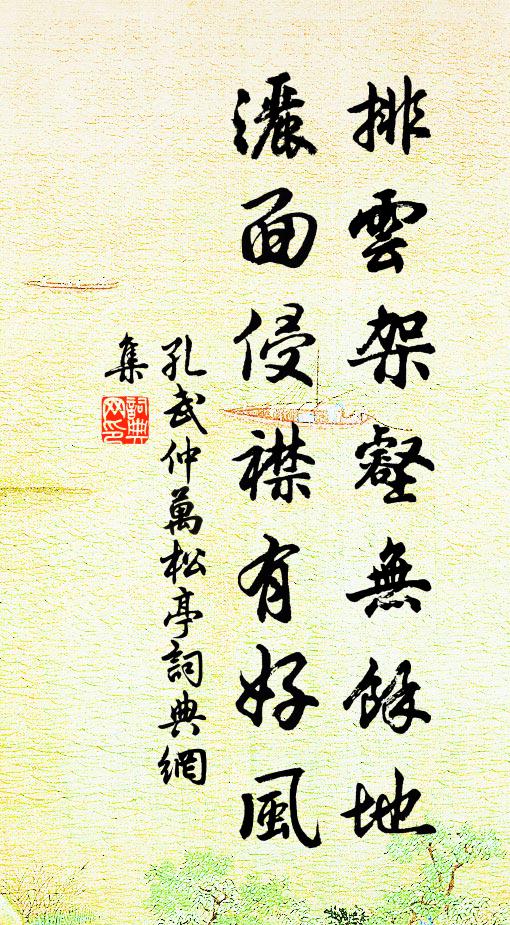 排雲架壑無餘地
灑面侵襟有好風
孔武仲萬松亭詞典網
集
詞典
网印